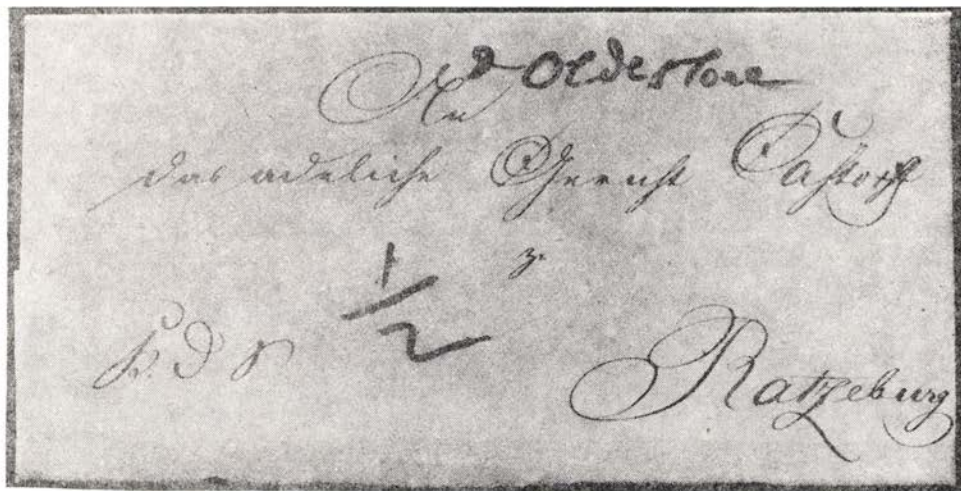 d Oldesloe
An
das adeliche Gericht Castorf
z.
1/2
Ratzeburg